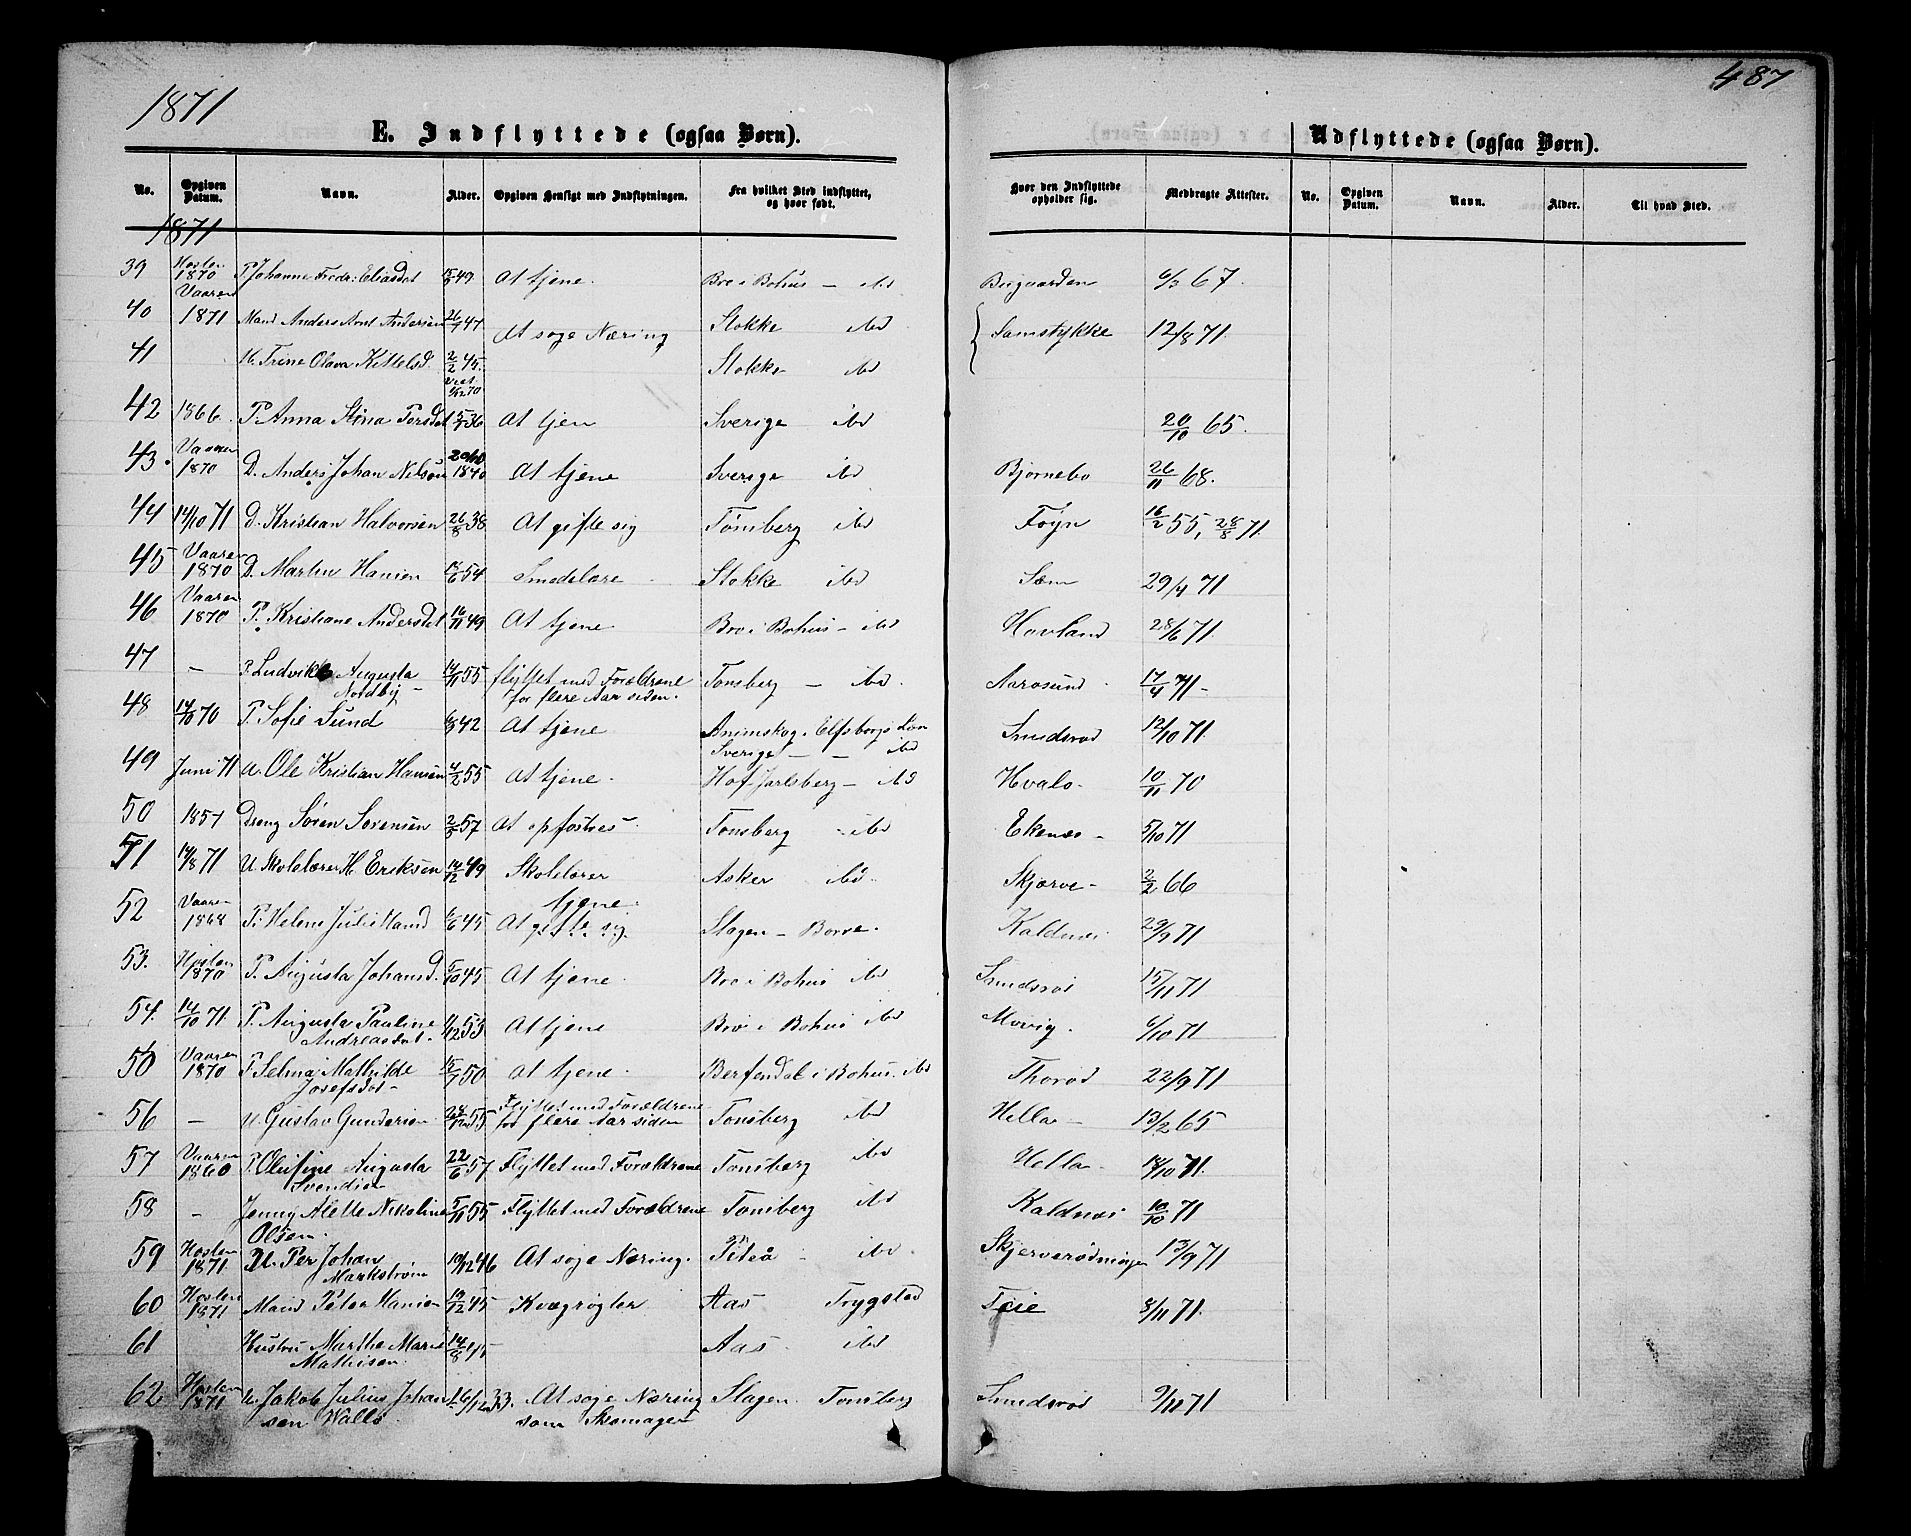 487
1871
E. Indflyttede (ogsaa Børn).
Udflyttede (ogsaa Børn).
No. Opgiven Datum. Navn. Alder. Opgiven Hensigt med Indflytningen. Fra hvilket Sted indflyttet, og hvor født. Hvor den Indflyttede opholder sig. Medbragte Attester. No. Opgiven Datum. Navn. Alder. Til hvad Sted.
1871
39 Høsten 1870 P. Johanne Fredr: Eliasdat 49 At tjene. Bro i Bohus – ibd 6/3 67.
40 Vaaren 1871 Mand Anders Arnt Andersen 26/7 47 At søge Næring Stokke ibd Samstykke 12/8 71.
41 H. Trine Olava Kittelsd. 2/2 45. Stokke ibd
42 1866. P. Anna Stina Persdat 36 At tjen Sverige ibd 20/10 65.
43. Vaaren 1870 D. Anders Johan Nelson 1840 At tjene Sverige ibd Bjørnebo 26/11 68.
44 14/10 71 D. Kristian Halvorsen 26/8 38 At gifte sig Tønsberg ibd Føyn 16/2 55, 28/8 71.
45 Vaaren 1870 D. Martin Hansen 54 Smedelære Stokke ibd Sæm 29/4 71
46 Vaaren 1870 P. Kristiane Andersdat 16/11 49 At tjene Bro i Bohus – ibd Hovland 28/6 71
47 – P. Ludvikke Augusta Nordby – 14/11 55 flyttet med Forældrene for flere Aar siden. Tønsberg – ibd Aarøsund 17/4 71 –
48 14/10 70 P. Sofie Lund 42 At tjene Animskog i Elfsborgs Län Sverige – – ibd Smidsrød 12/10 71.
49 Juni 71 U. Ole Kristian Hansen 4/2 55 At tjene. Hof Jarlsberg – ibd Hvalø. 10/11 70
50 1857 Dreng Søren Sørensen 57 At opfostres Tønsberg – ibd Ekenæs – 5/10 71
51 14/8 71 U. Skolelærer H. Eriksen 14/12 49 Skolelærer Asker ibd. Skjærve – 2/2 66
52 Vaaren 1868 P. Helene Julie Hansd 6/6 45 At gifte sig tjene Slagen – Borre. Kaldnæs 29/9 71
53. Høsten 1870 P. Augusta Johansd. 5/10 45 At tjene Bro i Bohus ibd Smidsrød 15/11 71
54. 14/10 71. P. Augusta Pauline Andreasdat. 53 At tjene Bro i Bohus ibd Movig. 6/10 71
50 Vaaren 1870 P. Selma Mathilde Josefsdat – 50 At tjene. Berfendal i Bohus. ibd Thorød 22/9 71
56 – U. Gustav Gundersen 28/12 55 Flyttet med Forældrene for flere Aar siden Tønsberg ibd Hella – 13/2 65
57 Vaaren 1860 P. Olufine Augusta Svendsen 22/6 57 Flyttet med Forældrene Tønsberg ibd Hella. 18/10 71.
58 – Jenny Alette Nikoline Olsen. 5/11 55 Flyttet med Forældrene Tønsberg ibd Kaldnæs 10/10 71
59 Høsten 1871 U. Per Johan Markstrøm 10/12 46 At søge Næring. Piteå – ibd. 13/9 71
60 Høsten 1871 Mand Peter Hansen 10/12 45 Kvægrøgter Aas Trygstad Teie 8/11 71.
61 Hustru Marthe Marie Mathisen. 14/8 Aas ibd
62 Høsten 1871 U. Jakob Julius Johansen Wallø. 16/12 33. At søge Næring som Skomager Slagen Tønsberg Smidsrød 9/11 71